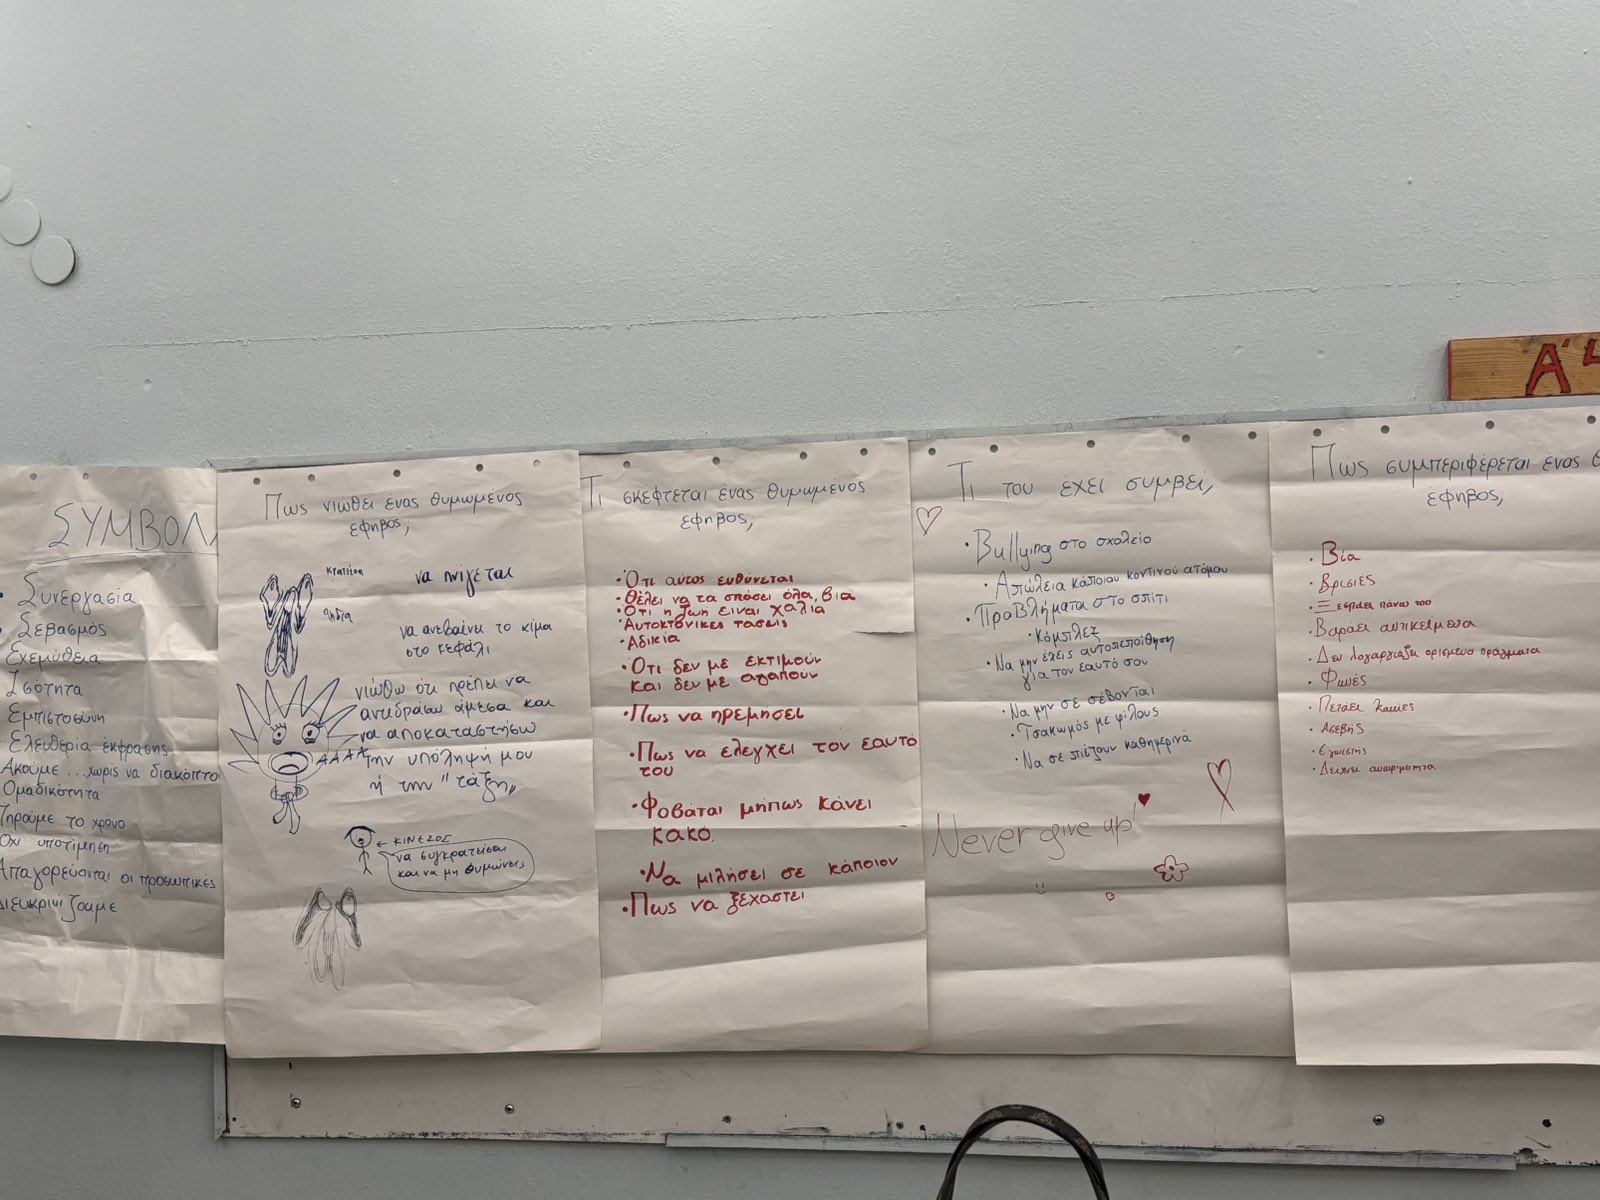 Α'
ΣΥΜΒΟΛ
Συνεργασία
Σεβασμός
Εχεμύθεια
Ισότητα
Εμπιστοσύνη
Ελευθερία έκφρασης
Ακούμε ... χωρίς να διακόπτο
Ομαδικότητα
Τηρούμε το χρόνο
Όχι υποτίμηση
Απαγορεύονται οι προσωπικές
Διευκρινίζουμε
Πώς νιώθει ένας θυμωμένος
έφηβος;
να πνίγεται
να ανεβαίνει το αίμα
στο κεφάλι
νιώθω ότι πρέπει να
αντιδράσω άμεσα και
να αποκαταστήσω
ΑΑΑΑ την υπόληψή μου
ή την "τάξη"
← ΚΙΝΕΖΟΣ
να συγκρατείσαι
και να μη θυμώνεις
Τι σκέφτεται ένας θυμωμένος
έφηβος;
• Ότι αυτός ευθύνεται
• Θέλει να τα σπάσει όλα, βια
• Ότι η ζωη ειναι χαλια
• Αυτοκτονικες τασεις
• Αδικεία
• Ότι δεν με εκτιμούν
και δεν με αγαπούν
• Πως να ηρεμησει
• Πως να ελεγχει τον εαυτό
του
• Φοβάται μήπως κάνει
κακό.
• Να μιλήσει σε κάποιον
• Πως να ξεχαστει
Τι του έχει συμβεί;
• Bullying στο σχολείο
• Απώλεια κάποιου κοντινού ατόμου
• Προβλήματα στο σπίτι
• Κόμπλεξ
• Να μην έχεις αυτοπεποίθηση
για τον εαυτό σου
• Να μην σε σέβονται
• Τσακωμός με φίλους
• Να σε πιέζουν καθημερινά
Never give up!
Πώς συμπεριφέρεται ένας θ
έφηβος;
• Βία
• Βρισιές
• Ξεσπάει πάνω του
• Βαράει αντικείμενα
• Δεν λογαριάζει ορισμένα πράγματα
• Φωνές
• Πετάει
• Ασεβής
• Εγωιστής
• Δείχνει ανωριμότητα